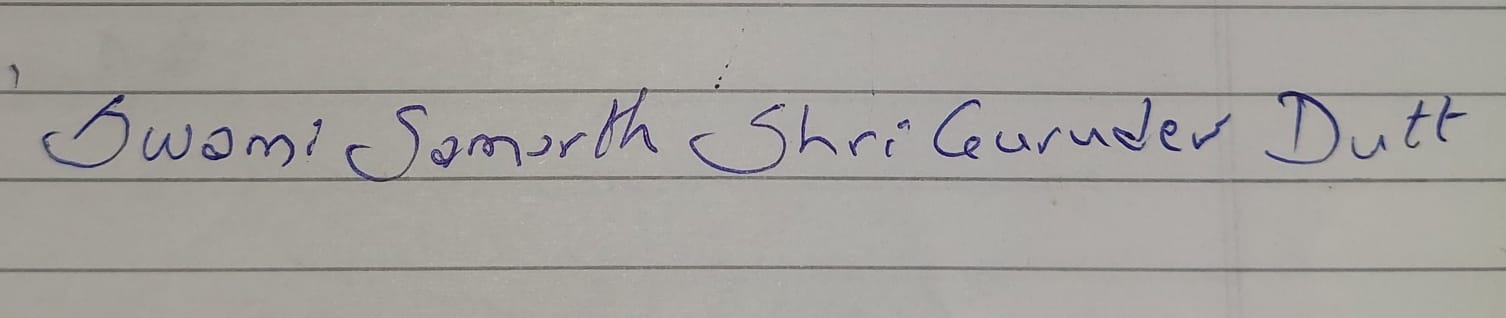 Swami Samarth Shri Gurudev Dutt